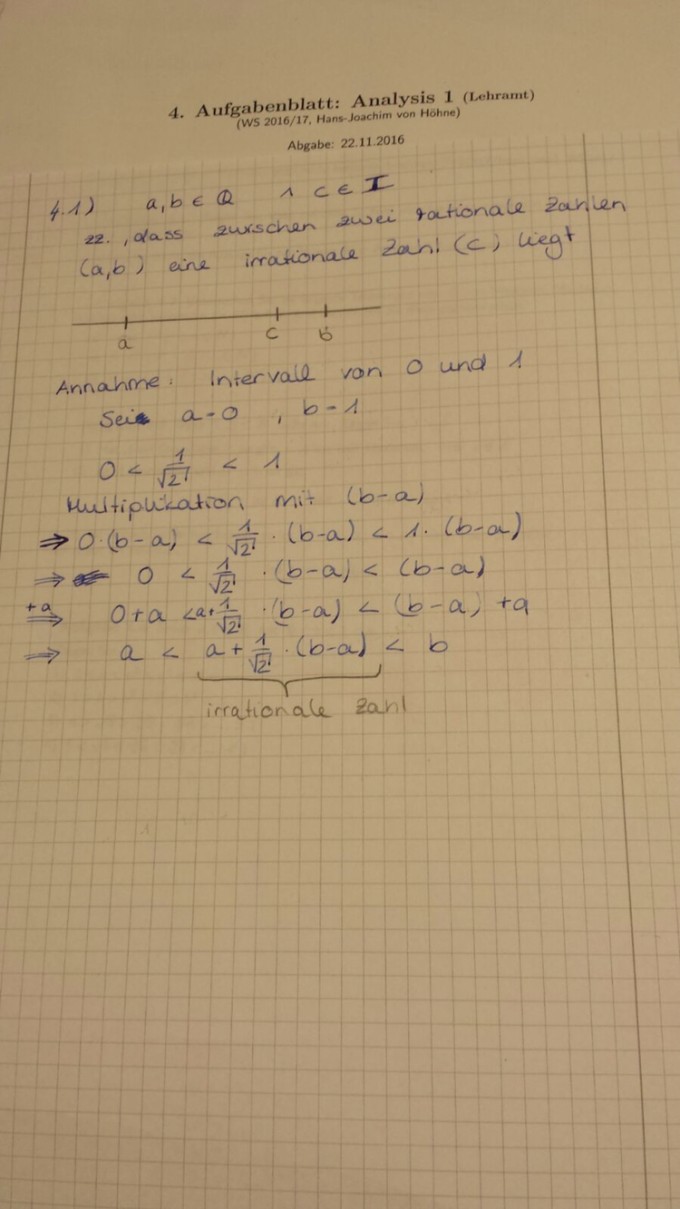 4. Aufgabenblatt: Analysis 1 (Lehramt)
(WS 2016/17, Hans-Joachim von Höhne)
Abgabe: 22.11.2016
4.1) a,b ∈ Q ∧ c ∈ I
zz., dass zwischen zwei rationale Zahlen
(a,b) eine irrationale Zahl (c) liegt
a c b
Annahme: Intervall von 0 und 1
Sei a=0 , b=1
0 < 1/√2 < 1
Multiplikation mit (b-a)
⇒ 0·(b-a) < 1/√2 · (b-a) < 1·(b-a)
⇒ 0 < 1/√2 · (b-a) < (b-a)
+a ⇒ 0+a < a+ 1/√2 · (b-a) < (b-a) +a
⇒ a < a + 1/√2 · (b-a) < b
irrationale Zahl